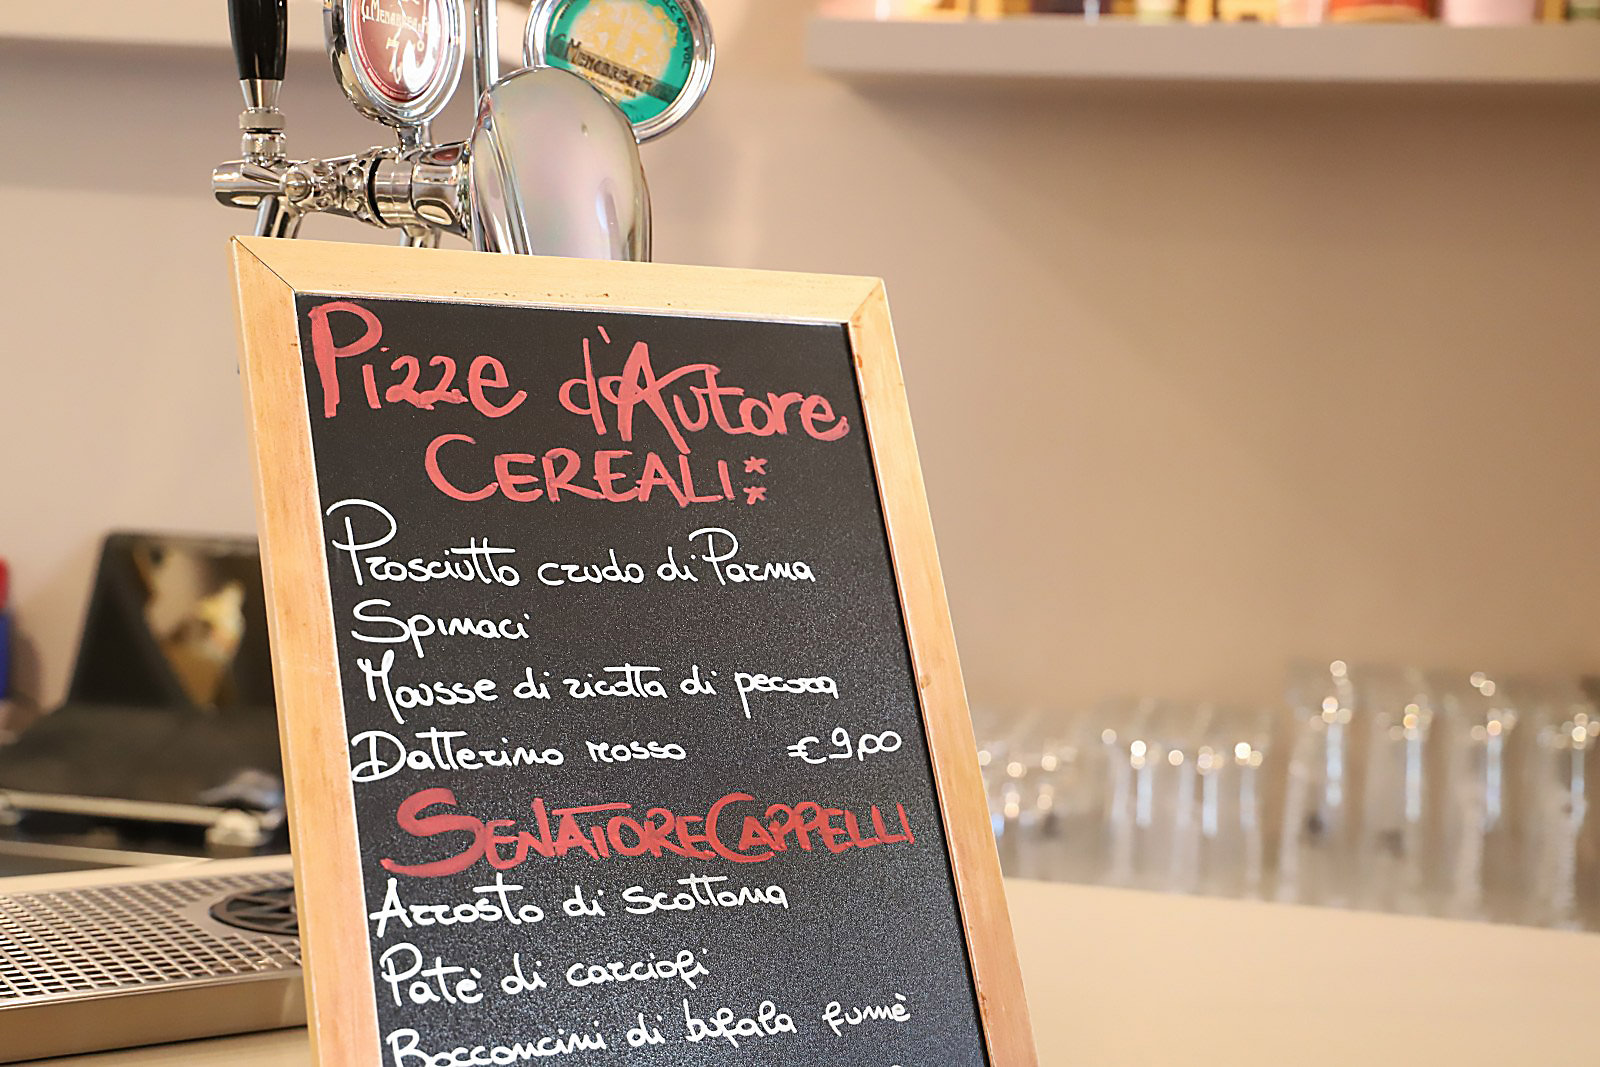 G. MENABREA
G. MENABREA & F.
Pizze d'Autore
CEREALI:
Prosciutto crudo di Parma
Spinaci
Mousse di ricotta di pecora
Datterino rosso €9,00
SENATORE CAPPELLI
Arrosto di scottona
Patè di carciofi
Bocconcini di bufala fumè